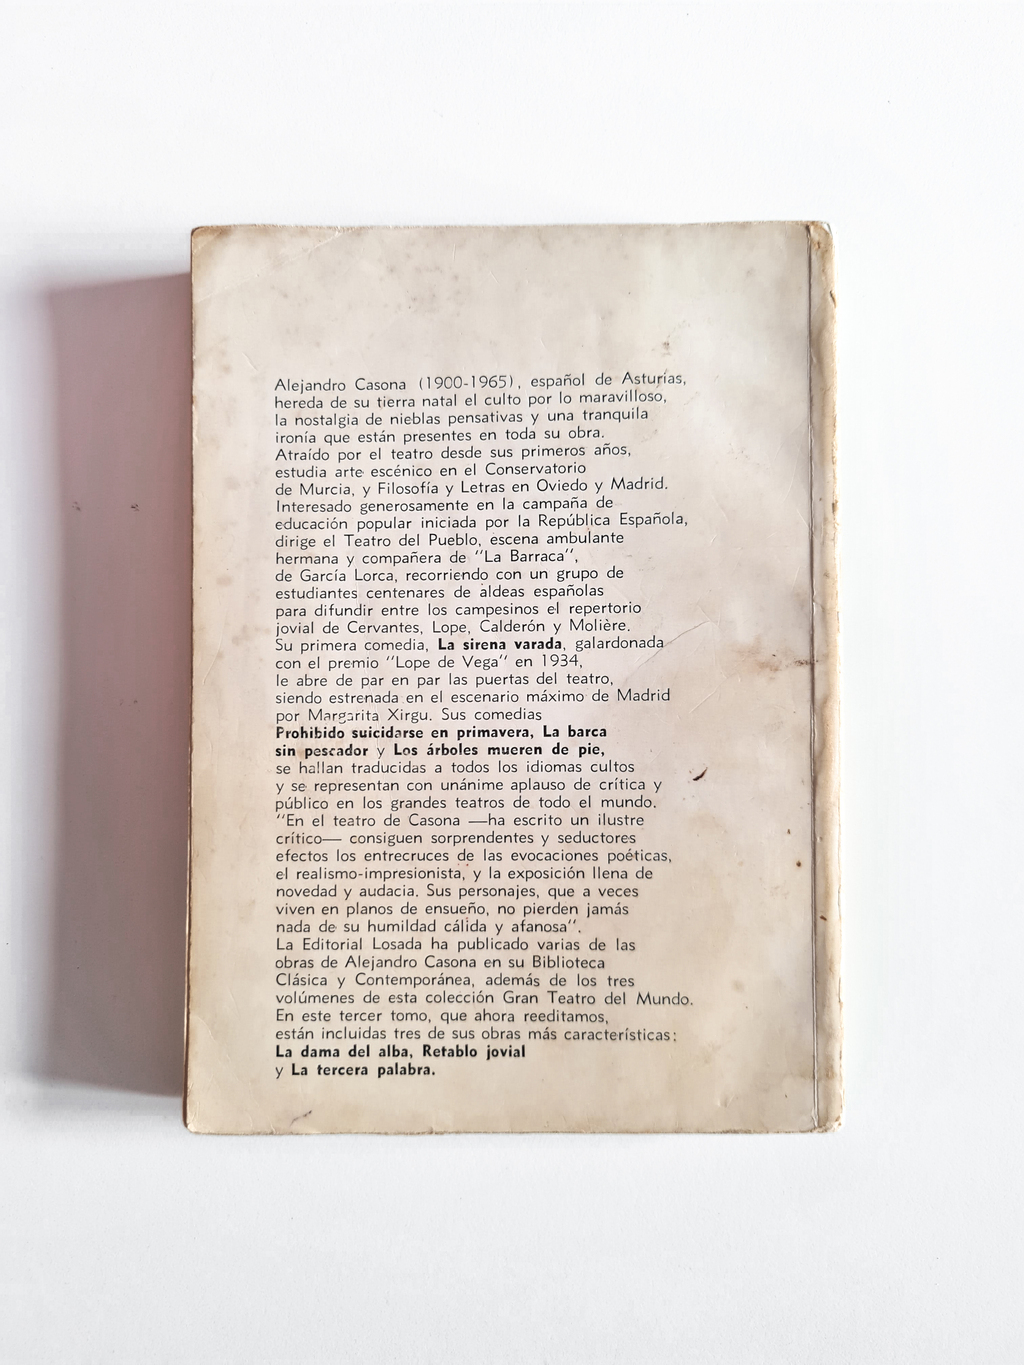 Alejandro Casona (1900-1965), español de Asturias,
hereda de su tierra natal el culto por lo maravilloso,
la nostalgia de nieblas pensativas y una tranquila
ironía que están presentes en toda su obra.
Atraído por el teatro desde sus primeros años,
estudia arte escénico en el Conservatorio
de Murcia, y Filosofía y Letras en Oviedo y Madrid.
Interesado generosamente en la campaña de
educación popular iniciada por la República Española,
dirige el Teatro del Pueblo, escena ambulante
hermana y compañera de "La Barraca",
de García Lorca, recorriendo con un grupo de
estudiantes centenares de aldeas españolas
para difundir entre los campesinos el repertorio
jovial de Cervantes, Lope, Calderón y Molière.
Su primera comedia, La sirena varada, galardonada
con el premio "Lope de Vega" en 1934,
le abre de par en par las puertas del teatro,
siendo estrenada en el escenario máximo de Madrid
por Margarita Xirgu. Sus comedias
Prohibido suicidarse en primavera, La barca
sin pescador y Los árboles mueren de pie,
se hallan traducidas a todos los idiomas cultos
y se representan con unánime aplauso de crítica y
público en los grandes teatros de todo el mundo.
"En el teatro de Casona —ha escrito un ilustre
crítico— consiguen sorprendentes y seductores
efectos los entrecruces de las evocaciones poéticas,
el realismo-impresionista, y la exposición llena de
novedad y audacia. Sus personajes, que a veces
viven en planos de ensueño, no pierden jamás
nada de su humildad cálida y afanosa".
La Editorial Losada ha publicado varias de las
obras de Alejandro Casona en su Biblioteca
Clásica y Contemporánea, además de los tres
volúmenes de esta colección Gran Teatro del Mundo.
En este tercer tomo, que ahora reeditamos,
están incluidas tres de sus obras más características:
La dama del alba, Retablo jovial
y La tercera palabra.